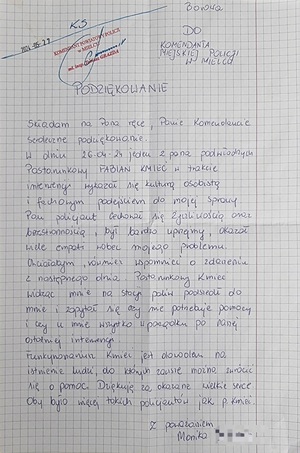 Borowa
KS
KOMENDANT POWIATOWY POLICJI
W MIELCU
DO
KOMENDANTA
MIEJSKIEJ POLICJI
W MIELCU
PODZIĘKOWANIE
Składam na Pana ręce, Panie Komendancie
serdeczne podziękowanie.
W dniu 26-04-24 jeden z pana podwładnych
Posterunkowy FABIAN KMIEĆ w trakcie
interwencji wykazał się kulturą osobistą
i fachowym podejściem do mojej sprawy
Pan policjant cechował się życzliwością oraz
bezstronnością, był bardzo uprzejmy, okazał
wiele empatii wobec mojego problemu.
Chciałabym również wspomnieć o zdarzeniu
z następnego dnia. Posterunkowy Kmieć
widząc mnie na stacji paliw podszedł do
mnie i zapytał się czy nie potrzebuję pomocy
i czy u mnie wszystko w porządku po
ostatniej interwencji.
Funkcjonariusz Kmieć jest dowodem na
istnienie ludzi, do których zawsze można zwrócić
się o pomoc. Dziękuję za okazane wielkie serce
Oby było więcej takich policjantów jak p. Kmieć.
Z poważaniem
Monika